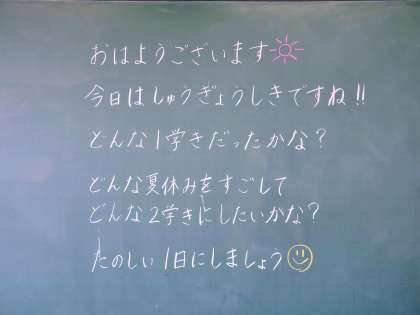 おはようございます
今日はしゅうぎょうしきですね!!
どんな1学きだったかな？
どんな夏休みをすごして
どんな2学きにしたいかな？
たのしい1日にしましょう